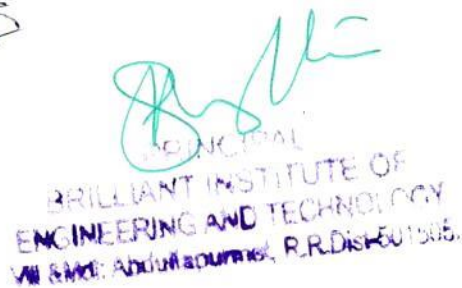 PRINCIPAL
BRILLIANT INSTITUTE OF
ENGINEERING AND TECHNOLOGY
Vill & Mdl: Abdullapurmet, R.R.Dist-501505.